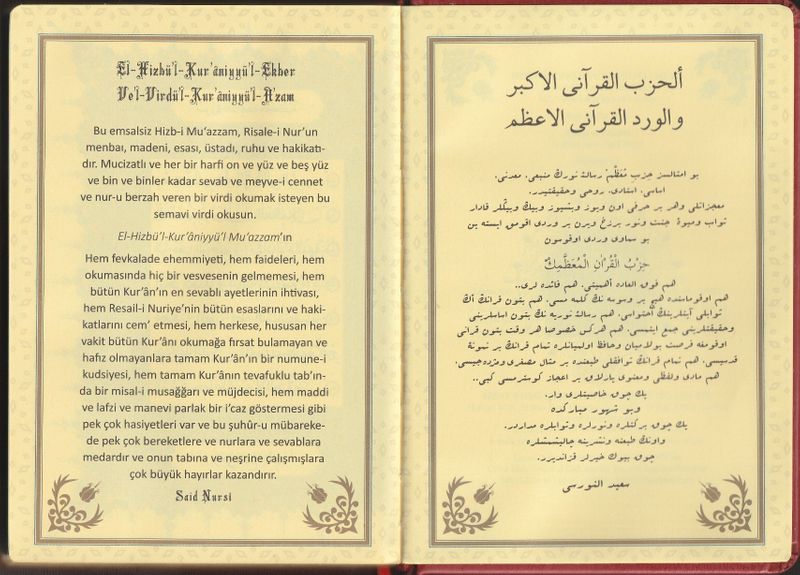 El-Hizbü'l-Kur'âniyyü'l-Ekber
Ve'l-Virdü'l-Kur'âniyyü'l-A'zam
Bu emsalsiz Hizb-i Mu'azzam, Risale-i Nur'un
menbaı, madeni, esası, üstadı, ruhu ve hakikatı-
dır. Mucizatlı ve her bir harfi on ve yüz ve beş yüz
ve bin ve binler kadar sevab ve meyve-i cennet
ve nur-u berzah veren bir virdi okumak isteyen bu
semavi virdi okusun.
El-Hizbü'l-Kur'âniyyü'l Mu'azzam'ın
Hem fevkalade ehemmiyeti, hem faideleri, hem
okumasında hiç bir vesvesenin gelmemesi, hem
bütün Kur'ân'ın en sevablı ayetlerinin ihtivası,
hem Resail-i Nuriye'nin bütün esaslarını ve haki-
katlarını cem' etmesi, hem herkese, hususan her
vakit bütün Kur'ânı okumağa fırsat bulamayan ve
hafız olmayanlara tamam Kur'ân'ın bir numune-i
kudsiyesi, hem tamam Kur'ânın tevafuklu tab'ın-
da bir misal-i musağğarı ve müjdecisi, hem maddi
ve lafzi ve manevi parlak bir i'caz göstermesi gibi
pek çok hasiyetleri var ve bu şuhûr-u mübareke-
de pek çok bereketlere ve nurlara ve sevablara
medardır ve onun tabına ve neşrine çalışmışlara
çok büyük hayırlar kazandırır.
Said Nursi
ألحزب القرآنى الاكبر
والورد القرآنى الاعظم
بو امثالسز حزب مُعَظَّمْ رسالهٔ نورك منبعى، معدنى،
اساسى، استادى، روحى وحقيقتيدر.
معجزاتلى وهر بر حرفى اون ويوز وبشيوز وبيك وبيڭلر قادار
ثواب وميوهٔ جنت ونور برزخ ويرن بر وردى اوقومق ايسته ين
بو سماوى وردى اوقوسون
حِزْبُ الْقُرْاٰنِ الْمُعَظَّمِڭْ
هم فوق العاده أهميتى، هم فائده لرى..
هم اوقوماسنده هيچ بر وسوسه نك كلمه مسى، هم بتون قرانك أڭ
ثوابلى آيتلرينك اُحتواسى، هم رسالهٔ نوريه نك بتون اساسلرينى
وحقيقتلرينى جمع ايتمسى، هم هركس خصوصا هر وقت بتون قرآنى
اوقومغه فرصت بولاميان وحافظ اولميانلره تمام قرانك بر نمونهٔ
قدسيسى، هم تمام قرانك توافقلى طبعنده بر مثال مصغرى ومژده جيسى،
هم مادى ولفظى ومعنوى پارلاق بر اعجاز كوسترمسى كبى..
پك چوق خاصيتلرى وار.
وبو شهور مباركه ده
پك چوق بركتلره ونورلره وثوابلره مداردر.
واونك طبعنه ونشرينه چاليشمشلره
چوق بيوك خيرلر قزانديرر.
سعيد النورسى